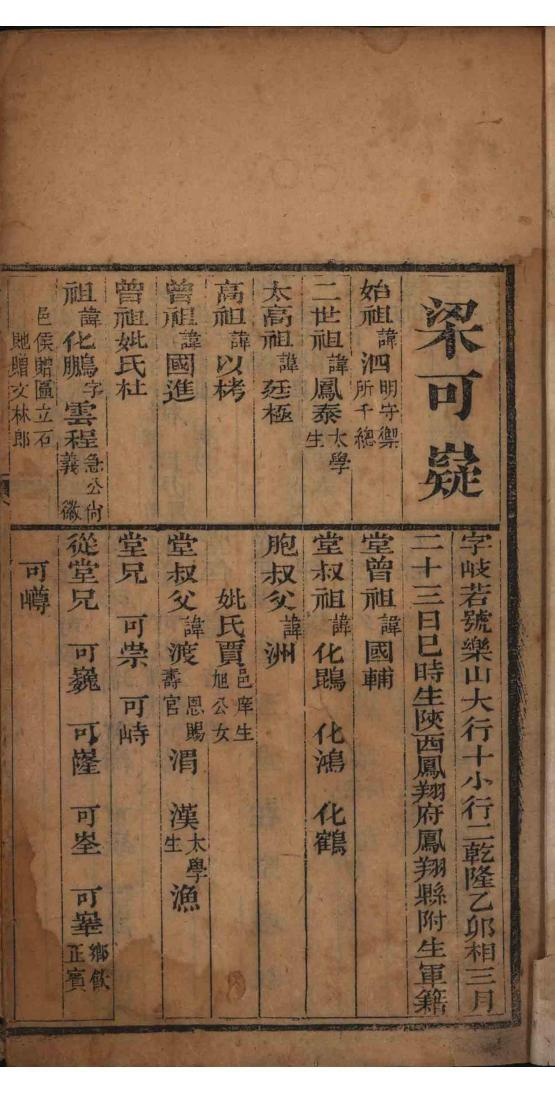 梁可嶷
字岐若號樂山大行十小行二乾隆乙卯相三月
二十三日巳時生陝西鳳翔府鳳翔縣附生軍籍
始祖諱泗明守禦所千總
二世祖諱鳳泰太學生
太高祖諱廷極
高祖諱以栲
曾祖諱國進
曾祖妣氏杜
祖諱化鵬字雲程急公尚義徽
邑侯贈匾立石
貤贈文林郎
堂曾祖諱國輔
堂叔祖諱化鵾 化鴻 化鶴
胞叔父諱洲
妣氏賈邑庠生旭公女
堂叔父諱渡恩賜壽官 渭 漢太學生 漁
堂兄 可崇 可峙
從堂兄 可巍 可嶐 可峚 可嶧鄉飲正賓
可嶟